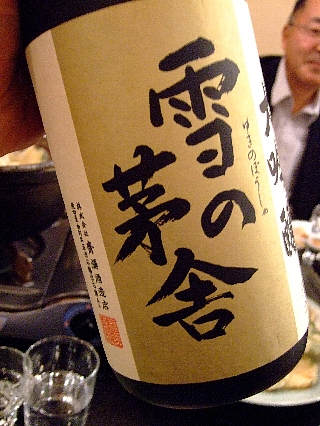 雪の茅舎
ゆきのぼうしゃ
大吟醸
株式会社 齋彌酒造店